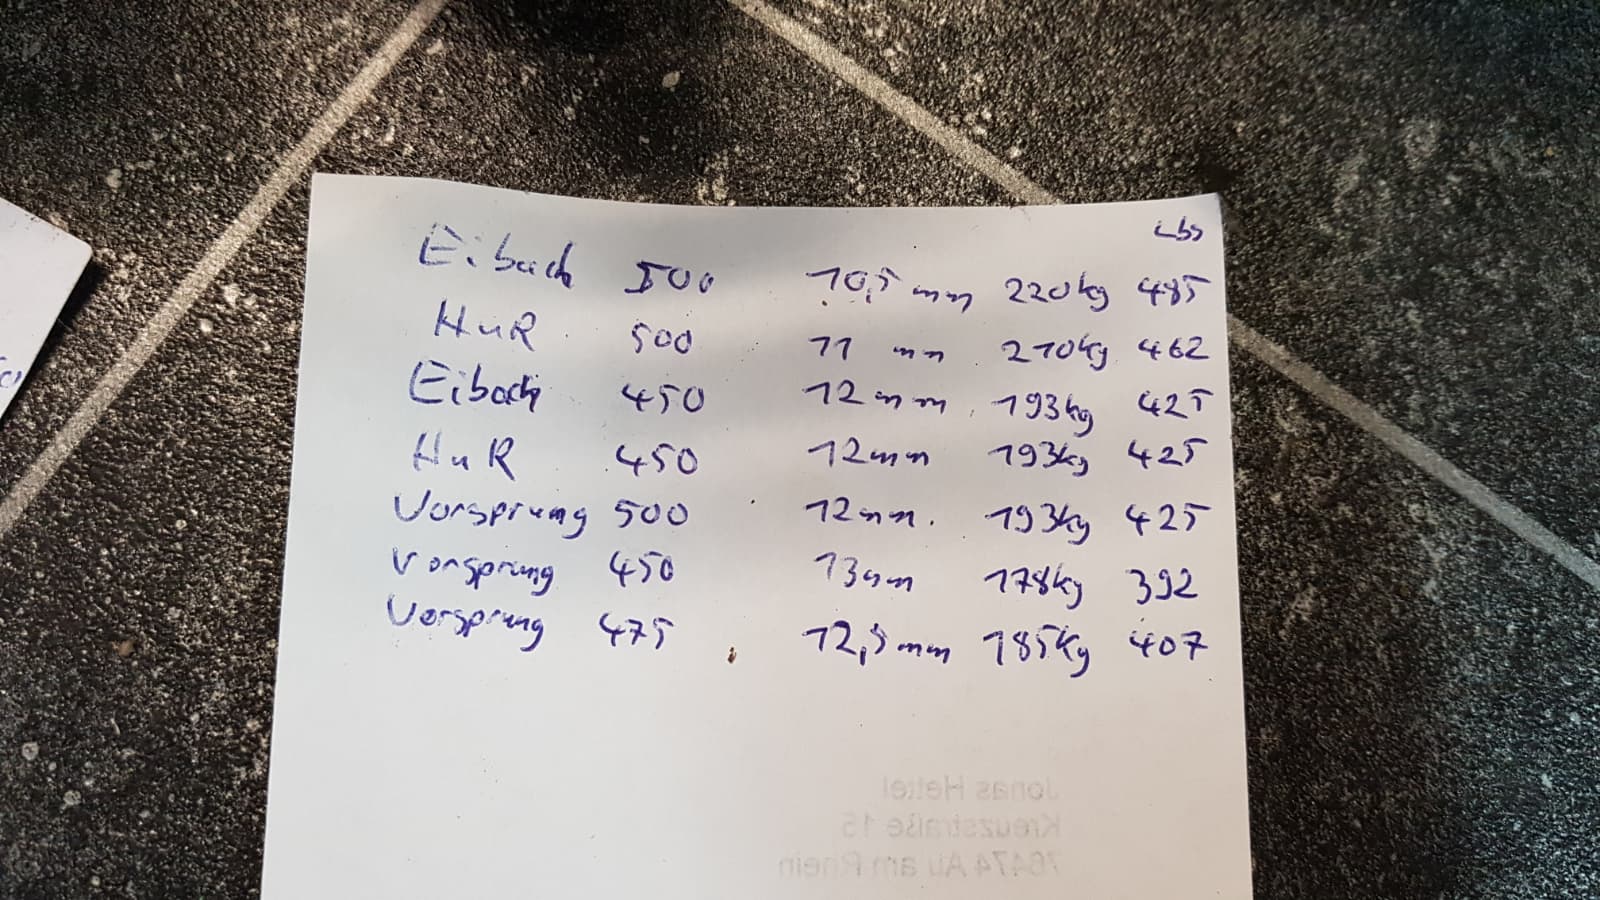 Lbs
Eibach 500 10,5 mm 220kg 485
HuR 500 11 mm 210kg 462
Eibach 450 12mm 193kg 425
HuR 450 12mm 193kg 425
Vorsprung 500 12mm. 193kg 425
Vorsprung 450 13mm 178kg 392
Vorsprung 475 12,5mm 185kg 407
Jonas Hettel
Kreuzstraße 15
76474 Au am Rhein